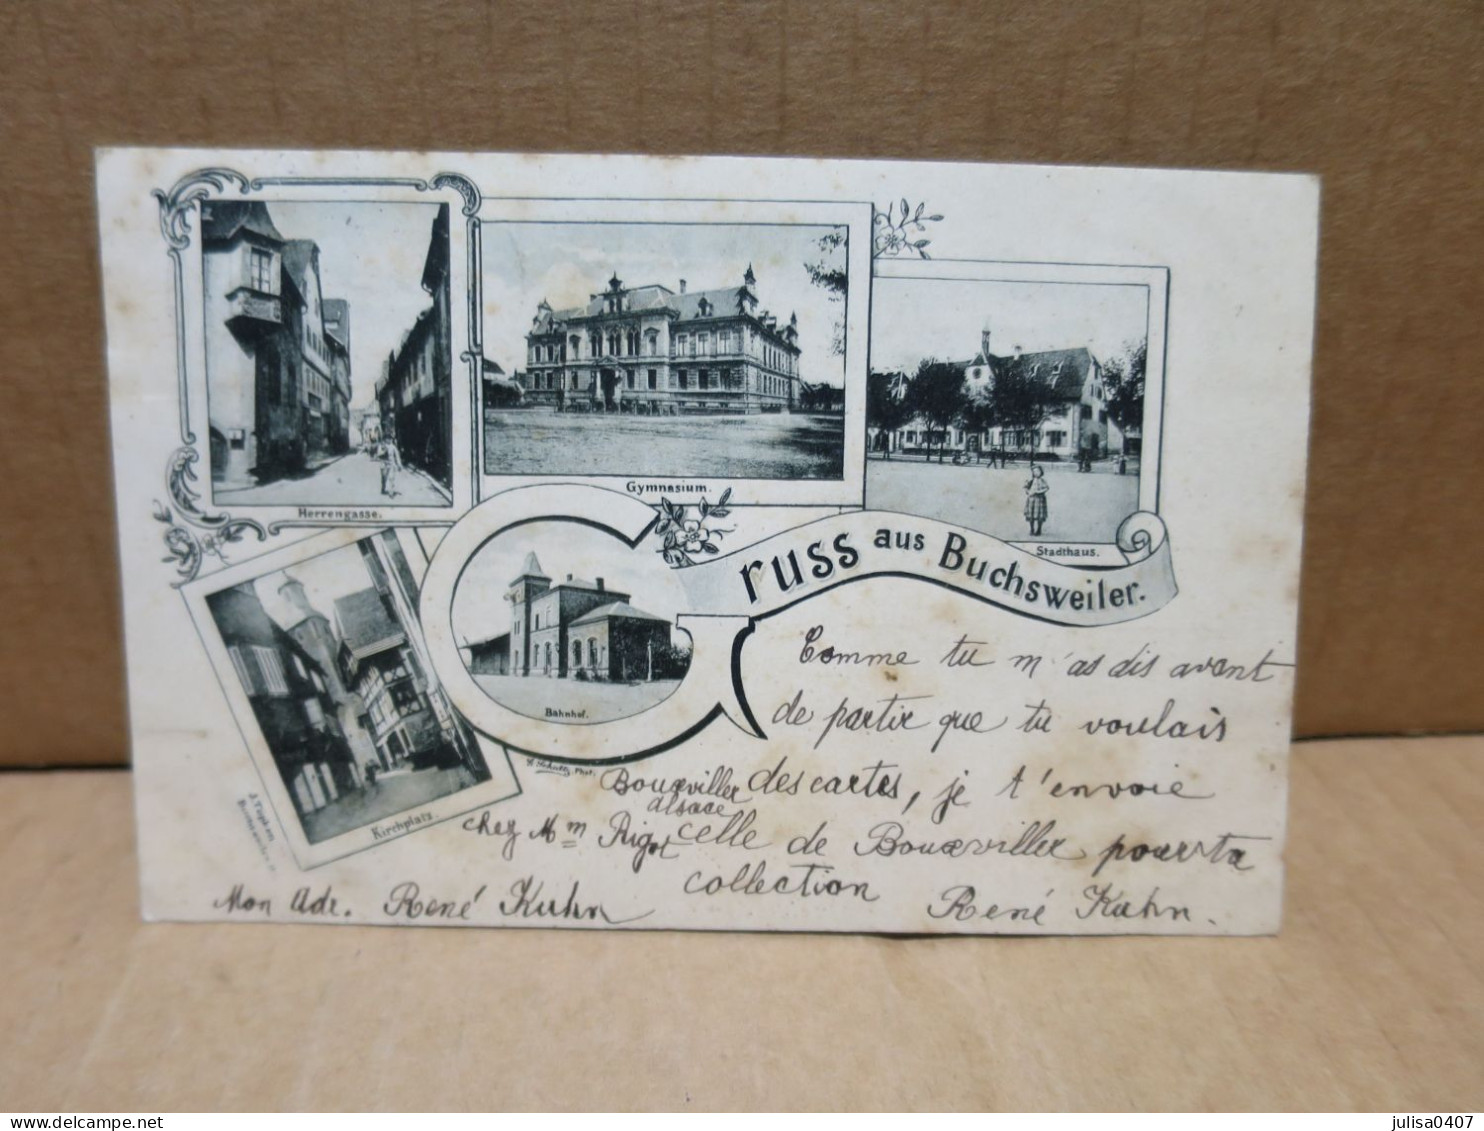 Herrengasse.
Gymnasium.
Stadthaus.
Gruss aus Buchsweiler.
Bahnhof.
Kirchplatz.
Comme tu m'as dis avant
de partir que tu voulais
des cartes, je t'envoie
celle de Bouxviller pour ta
collection
René Kuhn.
Mon Adr. René Kuhn
chez Mm Rigot
Bouxviller
alsace
julisa0407